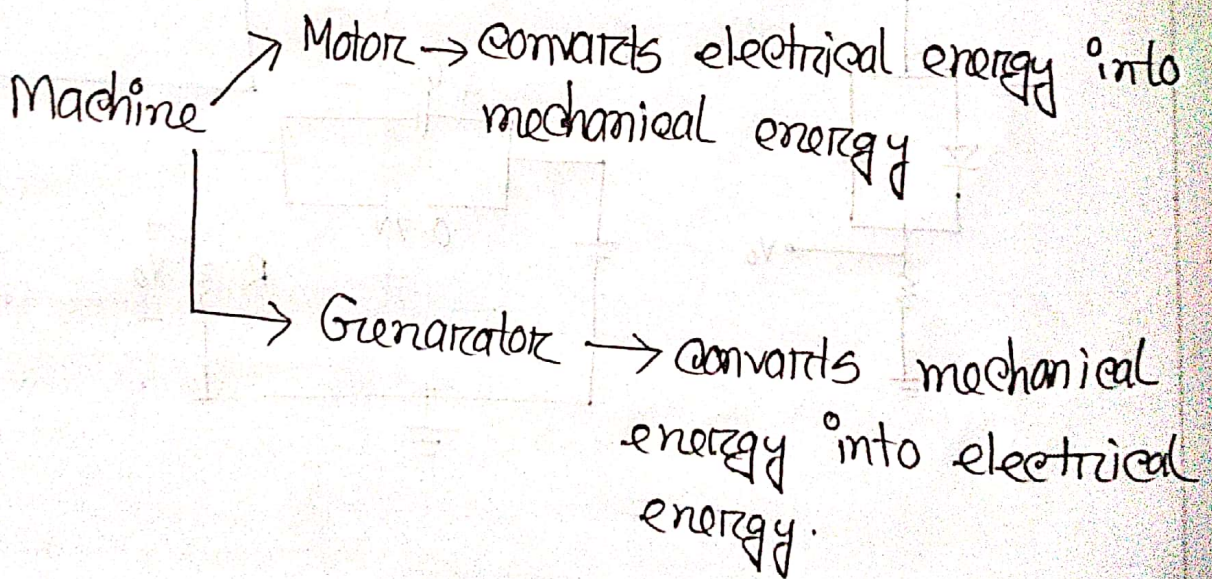 Motor → convarts electrical energy into
Machine
mechanical energy
Genarator → convarts mechanical
energy into electrical
energy.